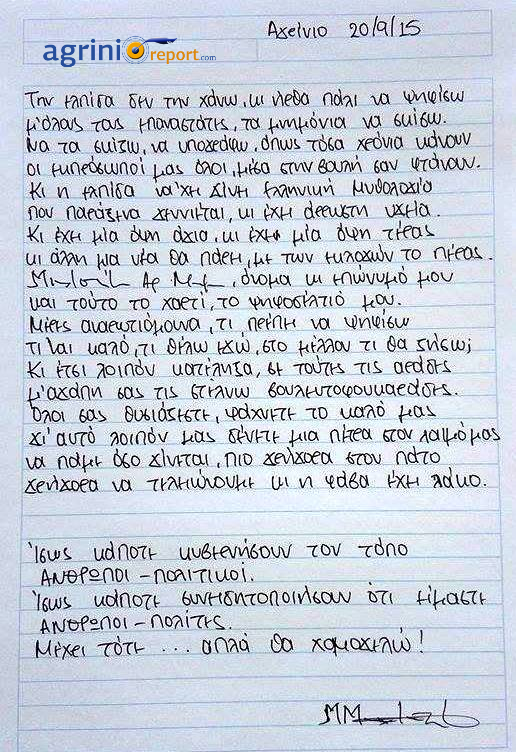 agrinioreport.com
Αγρίνιο 20/9/15
Την ελπίδα δεν την χάνω, κι ήρθα πάλι να ψηφίσω
μ'όλους τους επαναστάτες, τα μνημόνια να σκίσω.
Να τα σκίζω, να υπογράφω, όπως τόσα χρόνια κάνουν
οι εκπρόσωποί μας όλοι, μέσα στην βουλή σαν φτάνουν.
Κι η ελπίδα να'χει γίνει Ελληνική Μυθολογία
που παράξενα γεννιέται, κι έχει άρρωστη υγεία.
Κι έχει μία όψη άγια, κι έχει μία όψη τέρας
κι άλλη μια νέα θα πάρει, με των εκλογών το πέρας.
όνομα κι επώνυμό μου
και τούτο το χαρτί, το ψηφοδέλτιό μου.
Μέρες αναρωτιόμουνα, τι πρέπει να ψηφίσω
τι 'ναι καλό, τι θέλω εγώ, στο μέλλον τι θα ζήσω;
Κι έτσι λοιπόν κατέληξα, σε τούτες τις αράδες
μ'αγάπη σας τις στέλνω βουλευτοφουκαράδες.
Όλοι σας θυσιάζεστε, ψάχνετε το καλό μας
γι'αυτό λοιπόν μας δένετε μια πέτρα στον λαιμό μας
να πάμε όσο γίνεται, πιο γρήγορα στον πάτο
γρήγορα να τελειώνουμε κι η φάβα έχει λάκο.
Ίσως κάποτε κυβερνήσουν τον τόπο
ΑΝΘΡΩΠΟΙ - ΠΟΛΙΤΙΚΟΙ.
Ίσως κάποτε συνειδητοποιήσουν ότι είμαστε
ΑΝΘΡΩΠΟΙ - ΠΟΛΙΤΕΣ.
Μέχρι τότε ... απλά θα χαμογελώ!